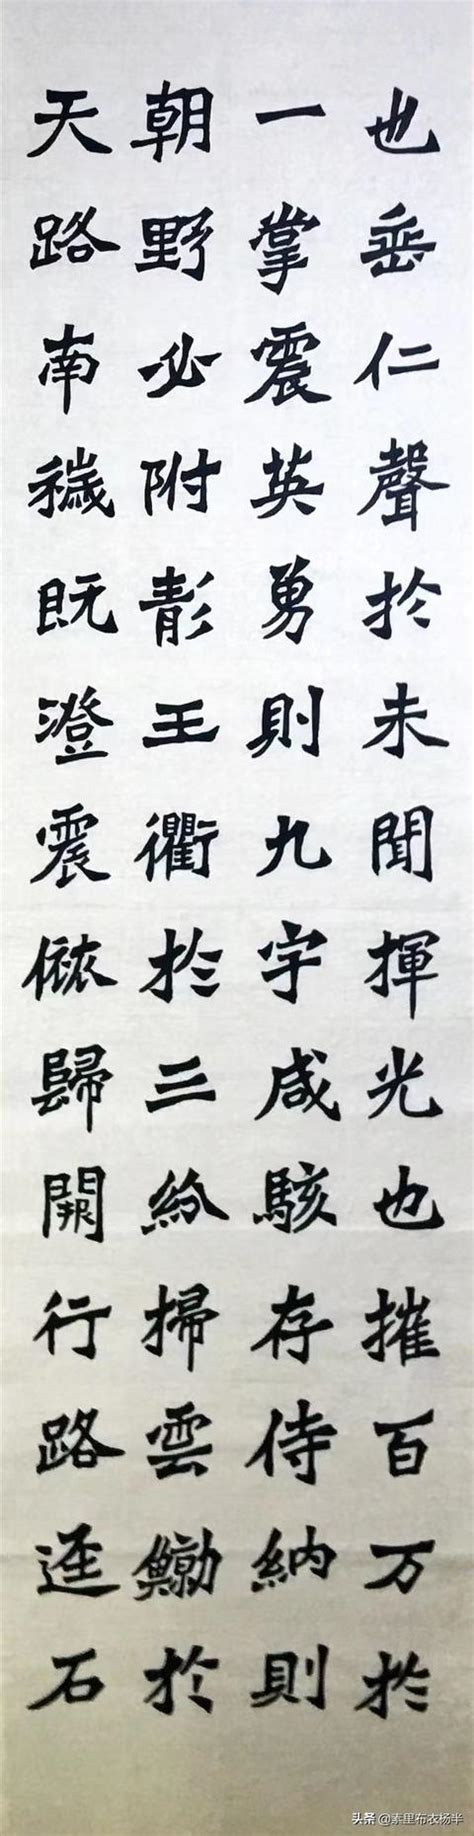 也垂仁聲於未聞揮光也摧百万於
一掌震英勇則九宇咸駭存侍納則
朝野必附彰王衢於三紛掃雲鯨於
天路南穢既澄震依歸開行路逕石
头条 @素里布衣杨半